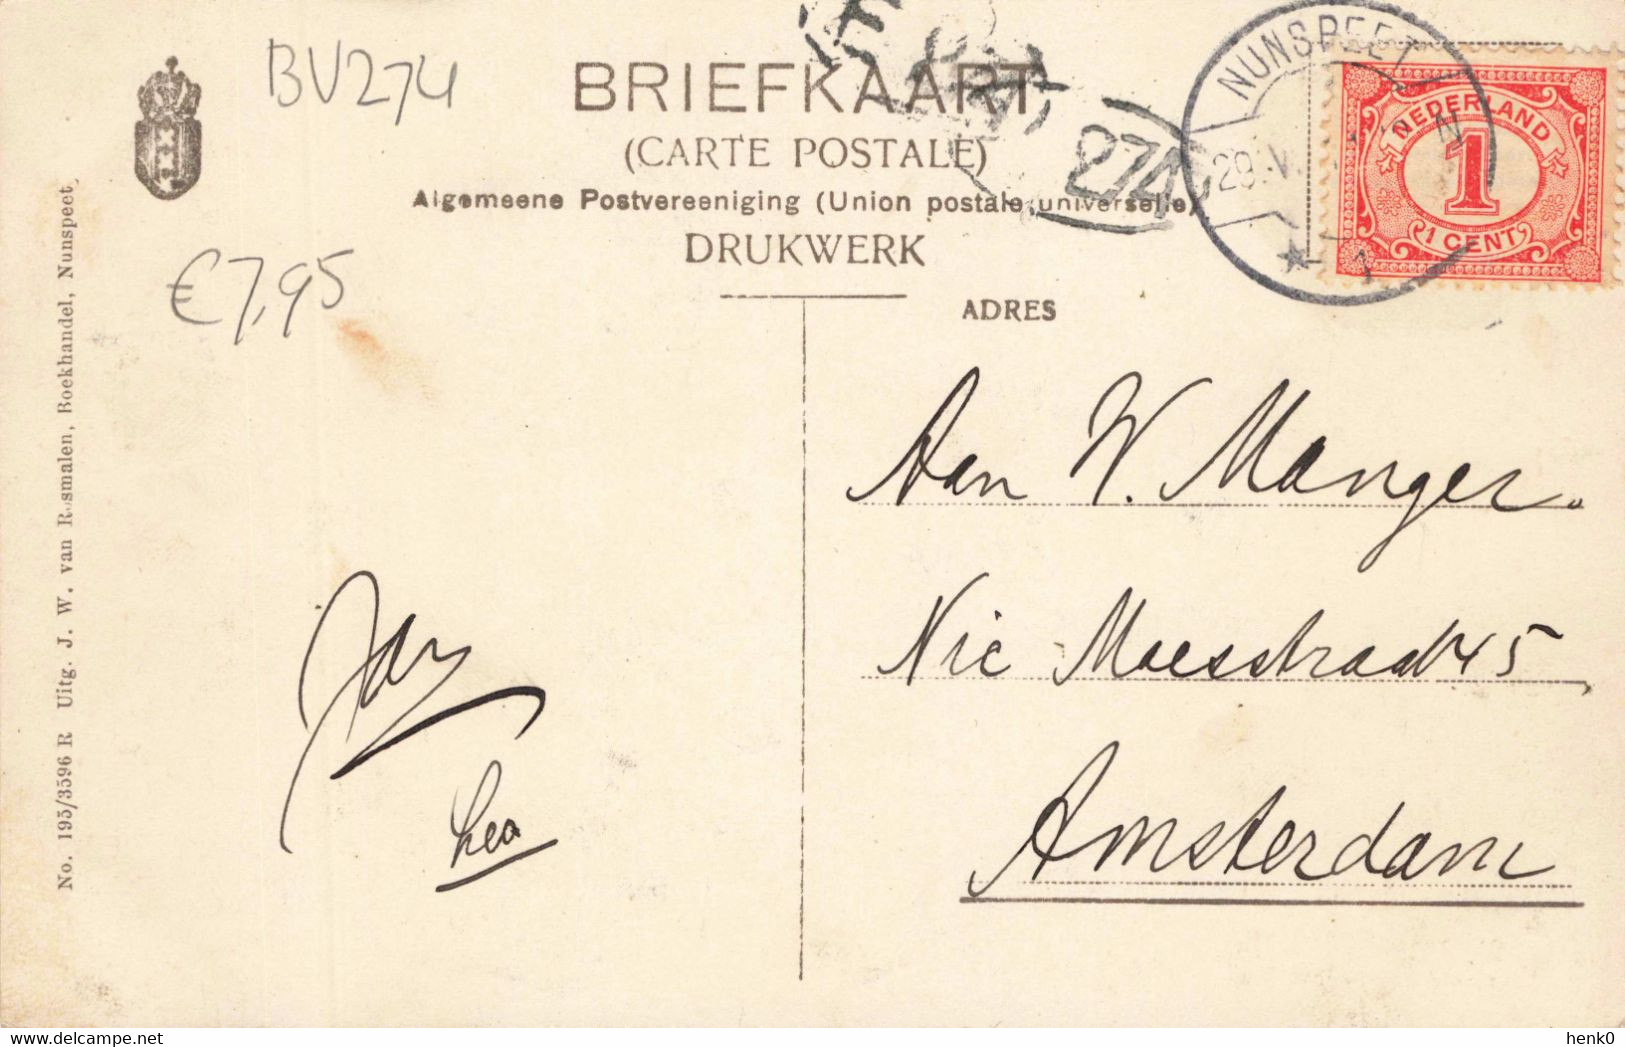 BV274
BRIEFKAART
(CARTE POSTALE)
Algemeene Postvereeniging (Union postale universelle)
DRUKWERK
274
NUNSPEET
29.V
NEDERLAND
1
1 CENT
€7,95
ADRES
Aan W. Manger.
Nic Maesstraat 45
Amsterdam
Lea
No. 195/3596 R Uitg. J. W. van Rosmalen, Boekhandel, Nunspeet
henk0